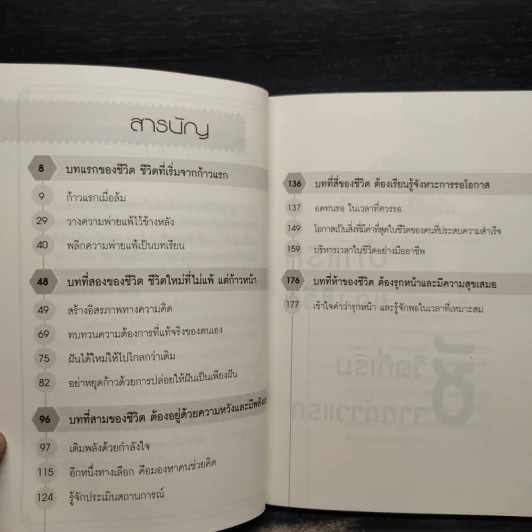 สารบัญ
8 บทแรกของชีวิต ชีวิตที่เริ่มจากก้าวแรก
9 ก้าวแรกเมื่อล้ม
29 วางความพ่ายแพ้ไว้ข้างหลัง
40 พลิกความพ่ายแพ้เป็นบทเรียน
48 บทที่สองของชีวิต ชีวิตใหม่ที่ไม่แพ้ แต่ก้าวหน้า
49 สร้างอิสรภาพทางความคิด
69 ทบทวนความต้องการที่แท้จริงของตนเอง
75 ฝันใต้ใหม่ให้ไปไกลกว่าเดิม
82 อย่าหยุดก้าวด้วยการปล่อยให้ฝันเป็นเพียงฝัน
96 บทที่สามของชีวิต ต้องอยู่ด้วยความหวังและมีพลัง
97 เติมพลังด้วยกำลังใจ
115 อีกหนึ่งทางเลือก คือมองหาคนช่วยคิด
124 รู้จักประเมินสถานการณ์
136 บทที่สี่ของชีวิต ต้องเรียนรู้จังหวะการรอโอกาส
137 อดทนรอ ในเวลาที่ควรรอ
149 โอกาสเป็นสิ่งที่มีค่าที่สุดในชีวิตของคนที่ประสบความสำเร็จ
159 บริหารเวลาในชีวิตอย่างมืออาชีพ
176 บทที่ห้าของชีวิต ต้องรุกหน้าและมีความสุขเสมอ
177 เข้าใจคำว่ารุกหน้า และรู้จักพอในเวลาที่เหมาะสม